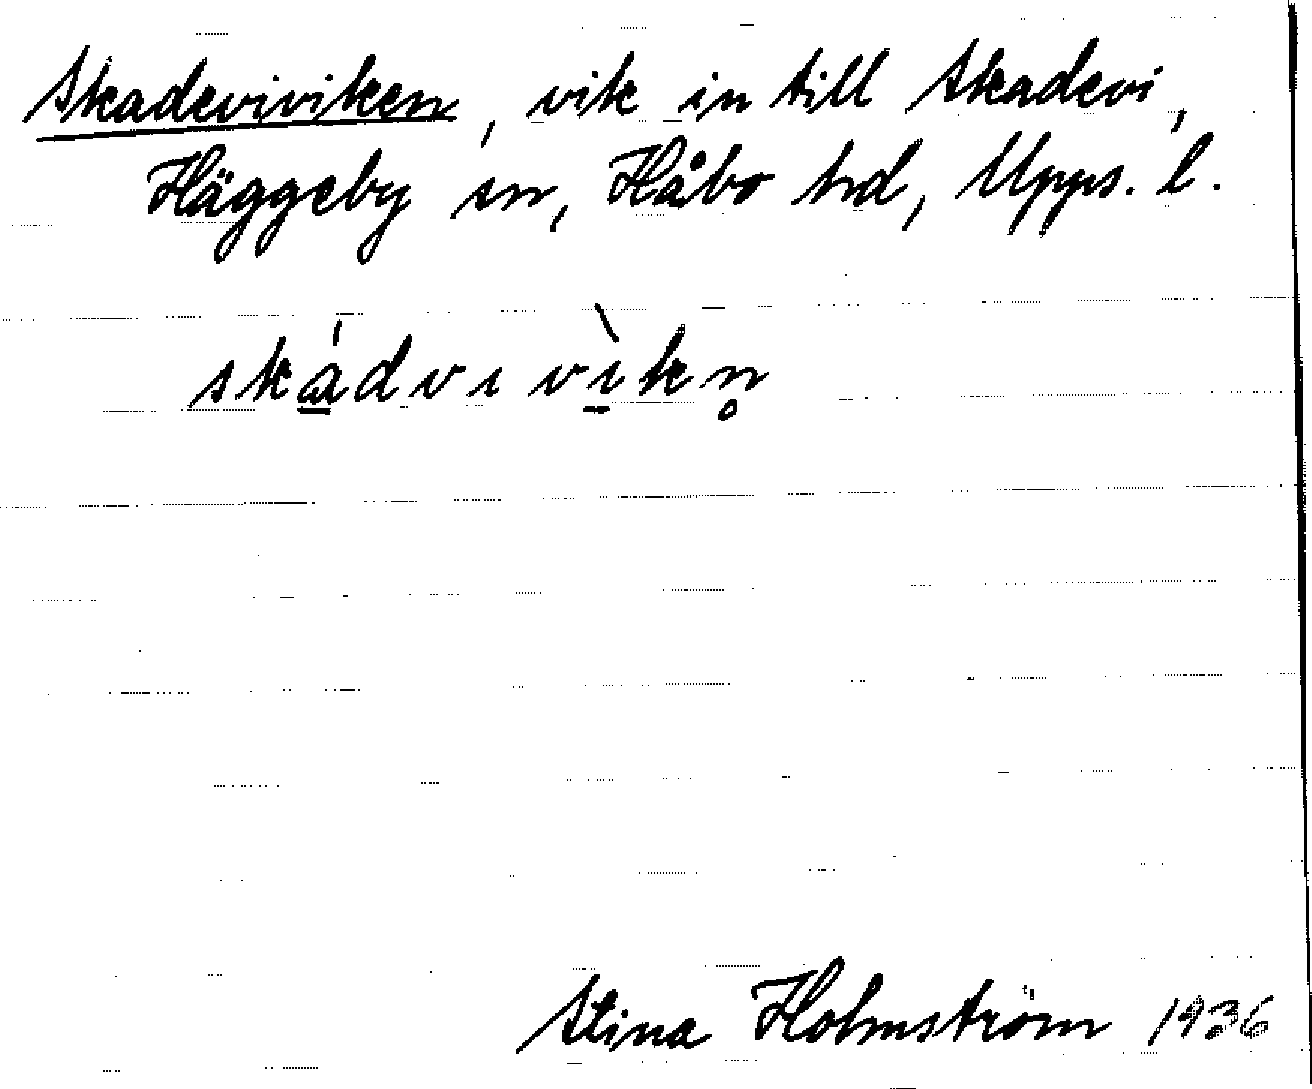 Skadeviviken, vik in till Skadevi,
Häggeby sn, Håbo hd, Upps. l.
ská̱dvı vı̱̀kn̥
Stina Holmström 1936